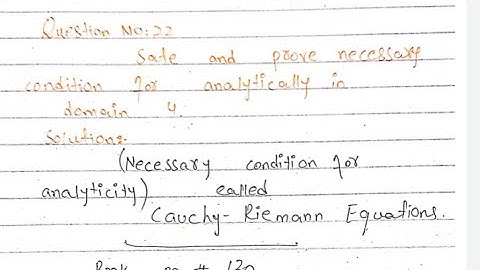 Question No:22
Sate and prove necessary
condition for analytically in
domain 4.
Solution:-
(Necessary condition for
analyticity) called
Cauchy-Riemann Equations.
Book no # 120